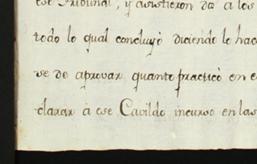 ese Tribunal, y asistieron da a los
todo lo qual concluyó diciendo le hac
se de aprovar quanto practicó en e
clarar á ese Cavildo incurso en las